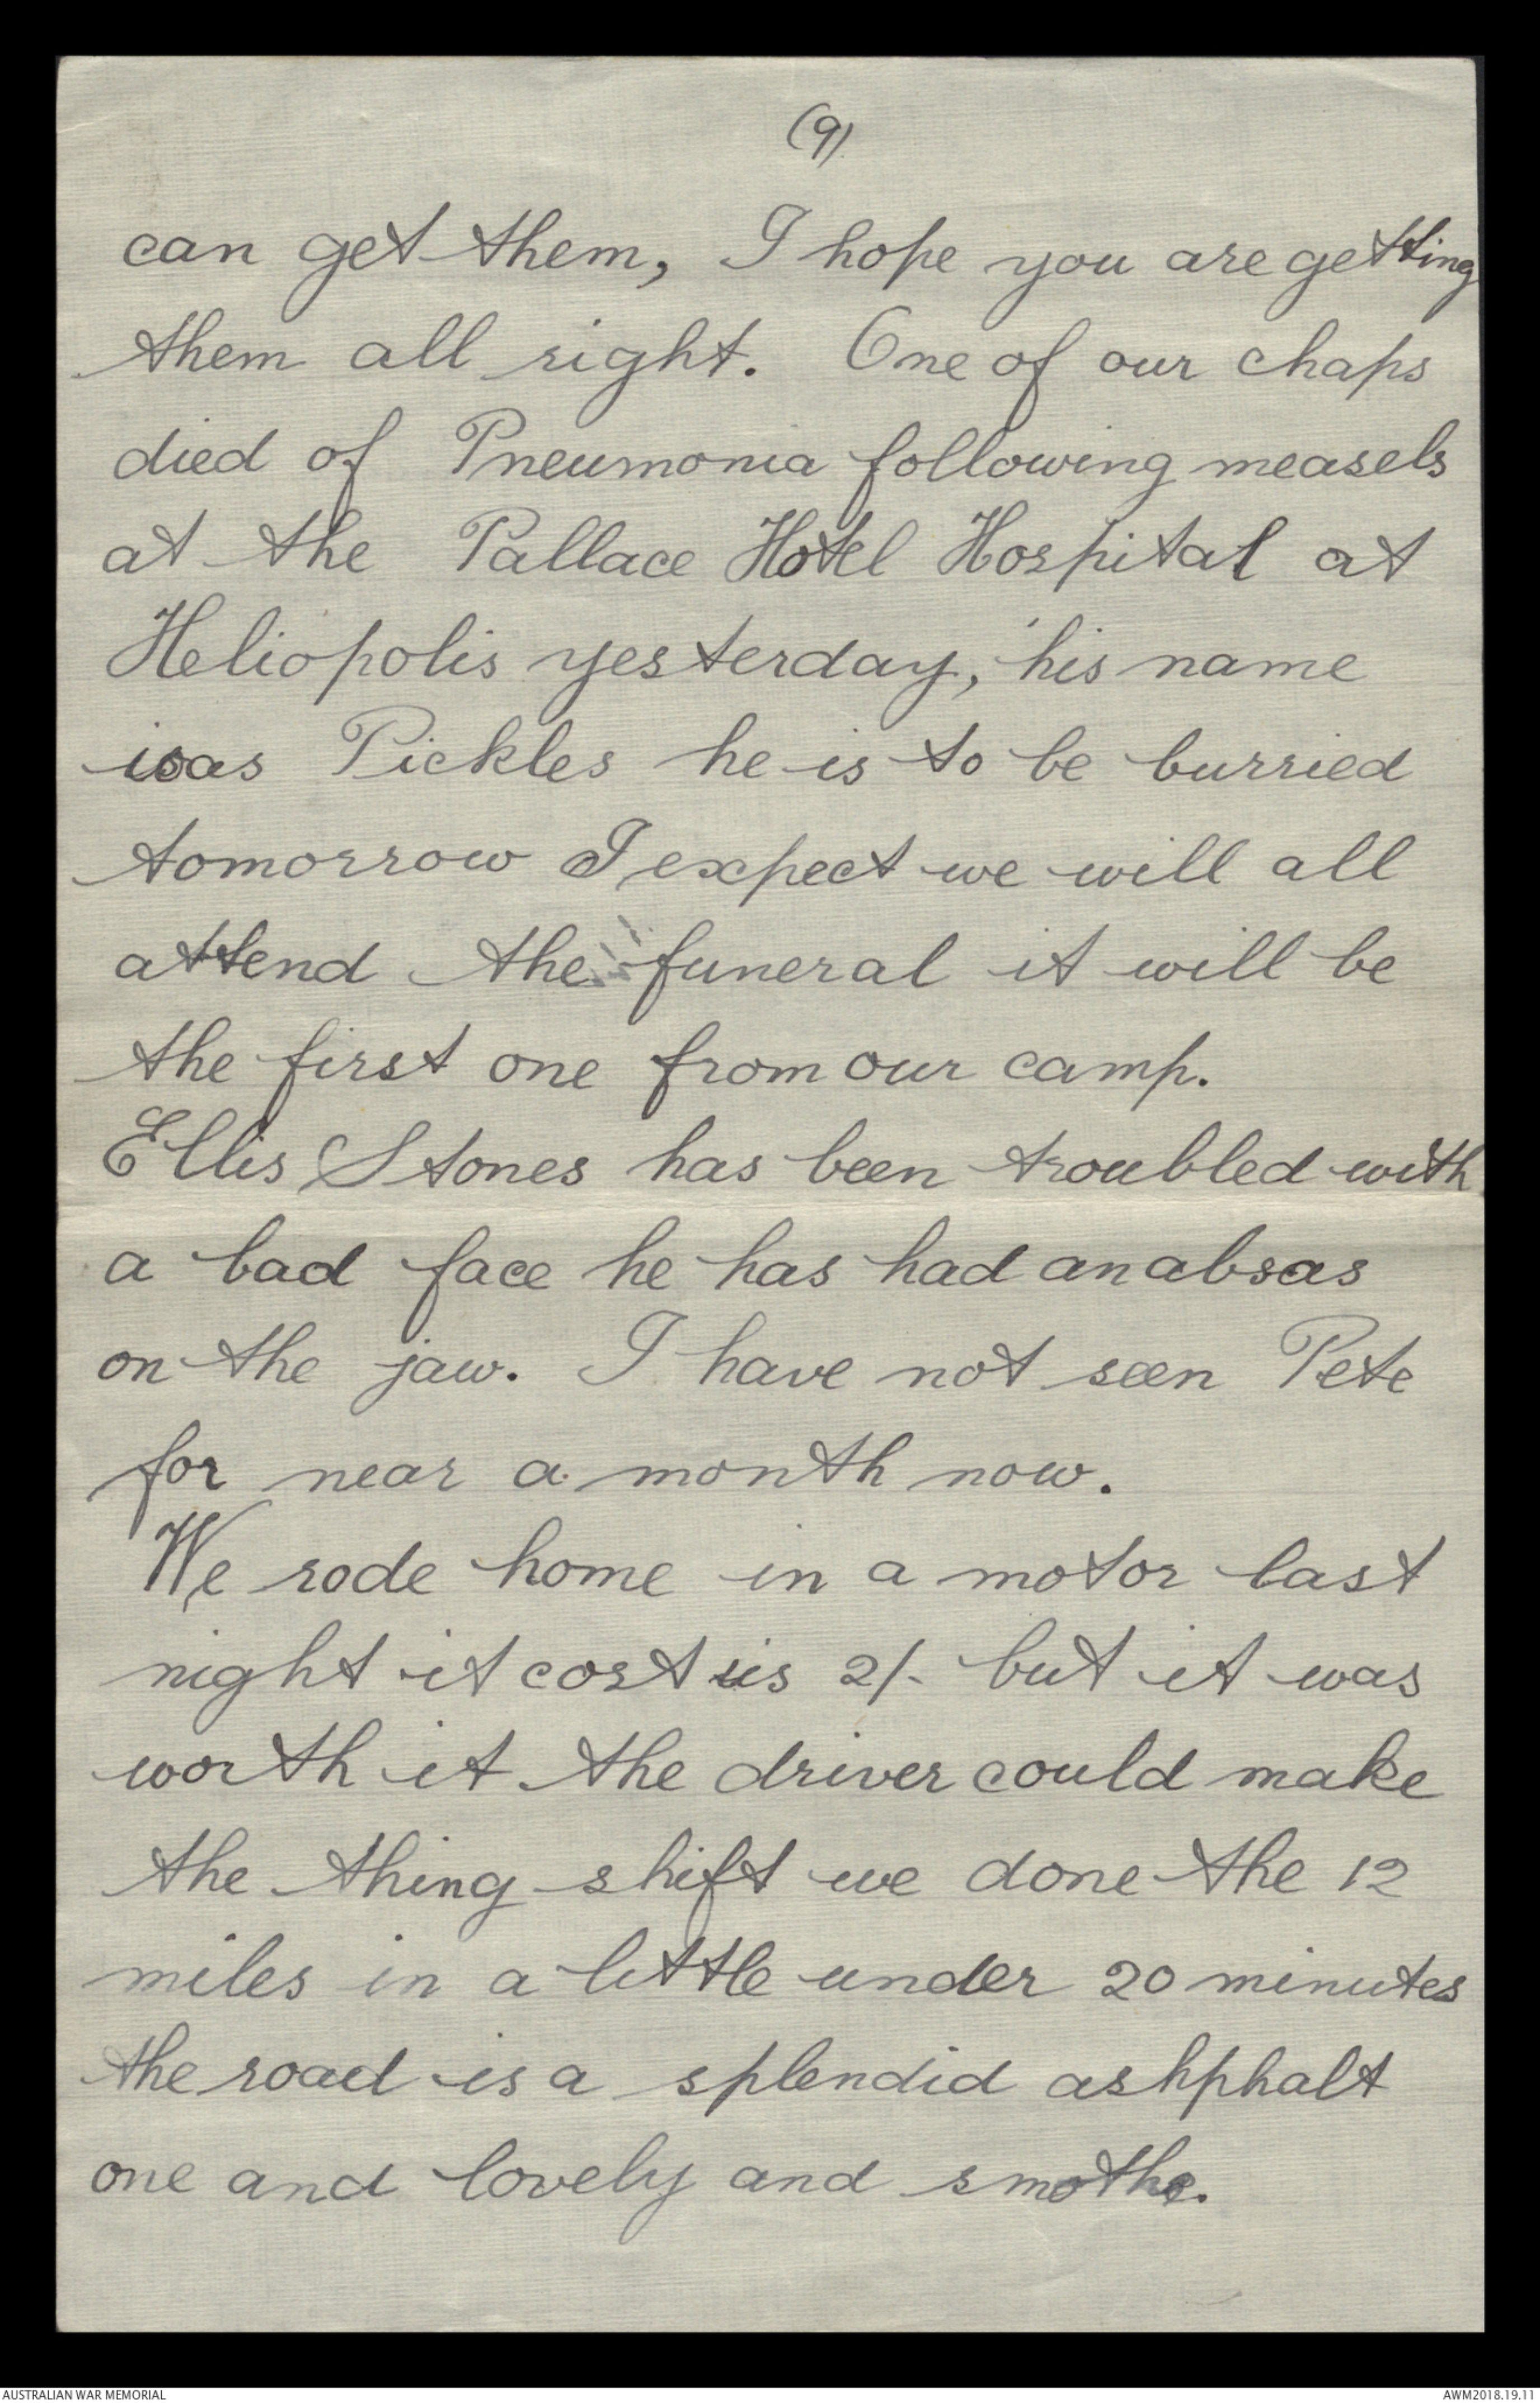 (9)
can get them, I hope you are getting
them all right. One of our chaps
died of Pneumonia following measels
at the Pallace Hotel Hospital at
Heliopolis yesterday, his name
was Pickles he is to be burried
tomorrow I expect we will all
attend the funeral it will be
the first one from our camp.
Ellis Stones has been troubled with
a bad face he has had an absas
on the jaw. I have not seen Pete
for near a month now.
We rode home in a motor last
night it cost us 2/- but it was
worth it the driver could make
the thing shift we done the 12
miles in a little under 20 minutes
the road is a splendid ashphalt
one and lovely and smothe.
AUSTRALIAN WAR MEMORIAL
AWM2018.19.11